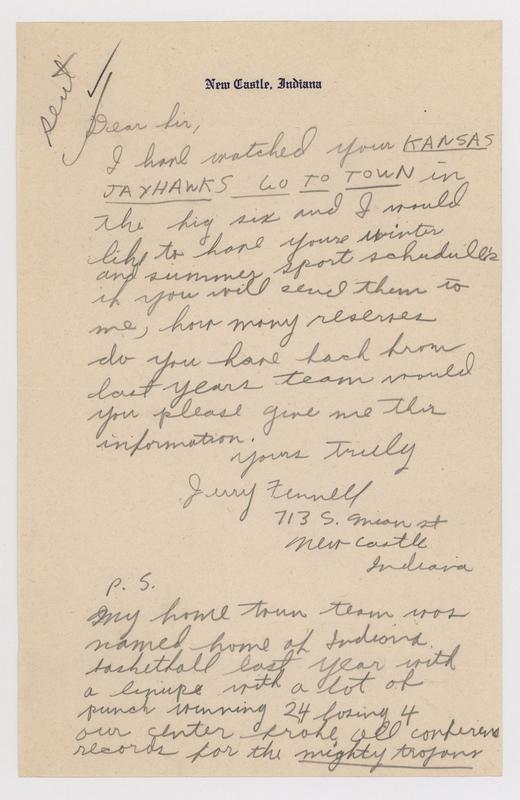 New Castle, Indiana
sent
Dear Sir,
I have watched your KANSAS
JAYHAWKS GO TO TOWN in
the big six and I would
like to have youre winter
and summer sport schedulels
if you will send them to
me, how many reserves
do you have back from
last years team would
you please give me this
information.
yours truly
Jerry Fennell
713 S. main st
New Castle
Indiana
P. S.
My home town team was
named home of Indiana
basketball last year with
a linupe with a lot of
punch winning 24 losing 4
our center broke all conference
records for the mighty trojans